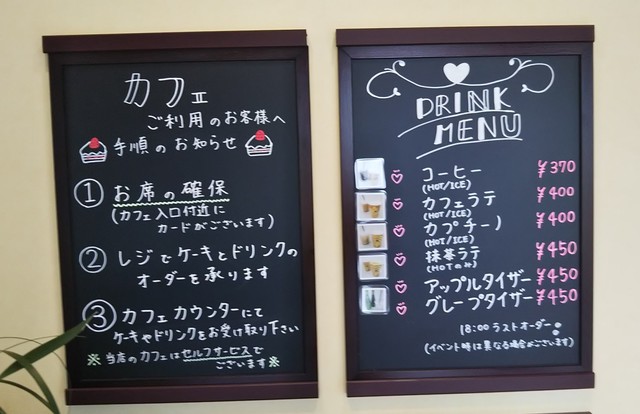 カフェ
ご利用のお客様へ
手順のお知らせ
① お席の確保
(カフェ入口付近に
カードがございます)
② レジでケーキとドリンクの
オーダーを承ります
③ カフェカウンターにて
ケーキやドリンクをお受け取り下さい
※当店のカフェはセルフサービスで
ございます※
DRINK
MENU
コーヒー ¥370
(HOT/ICE)
カフェラテ ¥400
(HOT/ICE)
カプチーノ ¥400
(HOT/ICE)
抹茶ラテ ¥450
(HOTのみ)
アップルタイザー ¥450
グレープタイザー ¥450
18:00 ラストオーダー
(イベント時は異なる場合がございます)